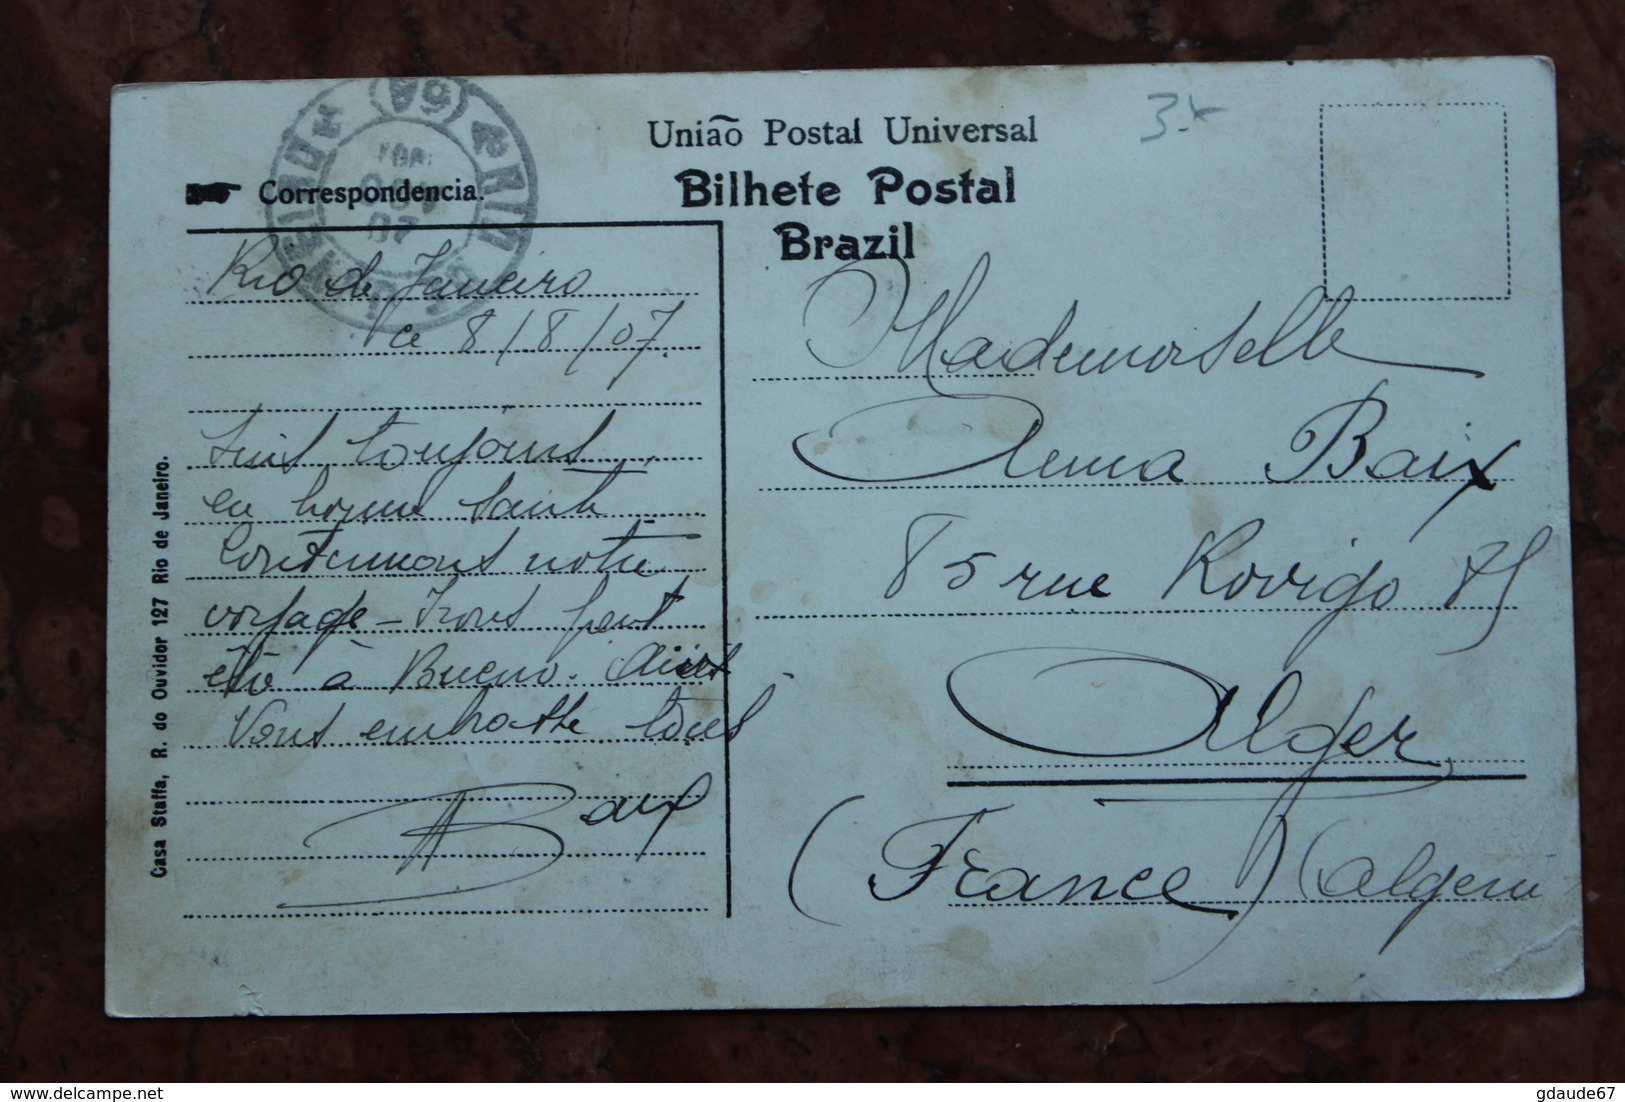 União Postal Universal
Bilhete Postal
Brazil
Correspondencia.
3.-
Rio de Janeiro
ce 8/8/07.
Suis toujours
en bonne santé
Continuons notre
voyage - Irons peut
être à Bueno. Aires
Vous embrasse tous
Baix
Mademoiselle
Anna Baix
85 rue Rovigo 85
Alger
(France) (Algerie
Casa Staffa, R. do Ouvidor 127 Rio de Janeiro.
gdaude67